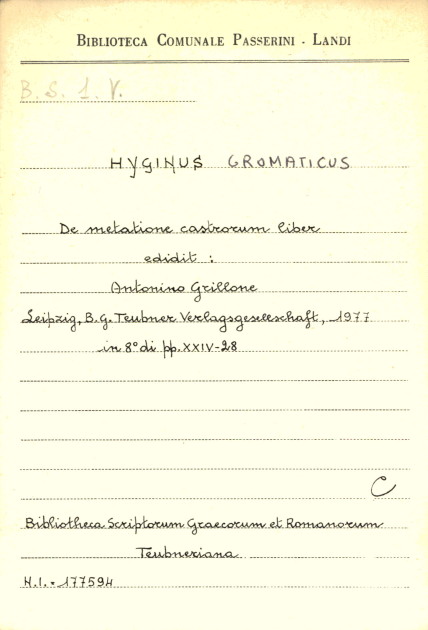 BIBLIOTECA COMUNALE PASSERINI - LANDI
B. S. 1. V.
HYGINUS GROMATICUS
De metatione castrorum liber
edidit :
Antonino Grillone
Leipzig, B. G. Teubner Verlagsgesellschaft, 1977
in 8° di pp. XXIV-28
C
Bibliotheca Scriptorum Graecorum et Romanorum
Teubneriana
N.I. = 177594